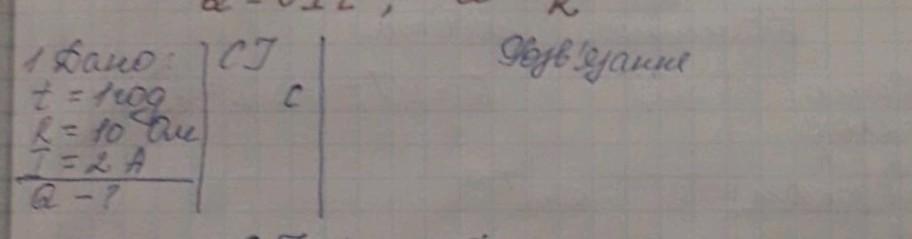 1 Дано: СІ Розв'язання
t = 1 год с
R = 10 Ом
I = 2 А
Q - ?